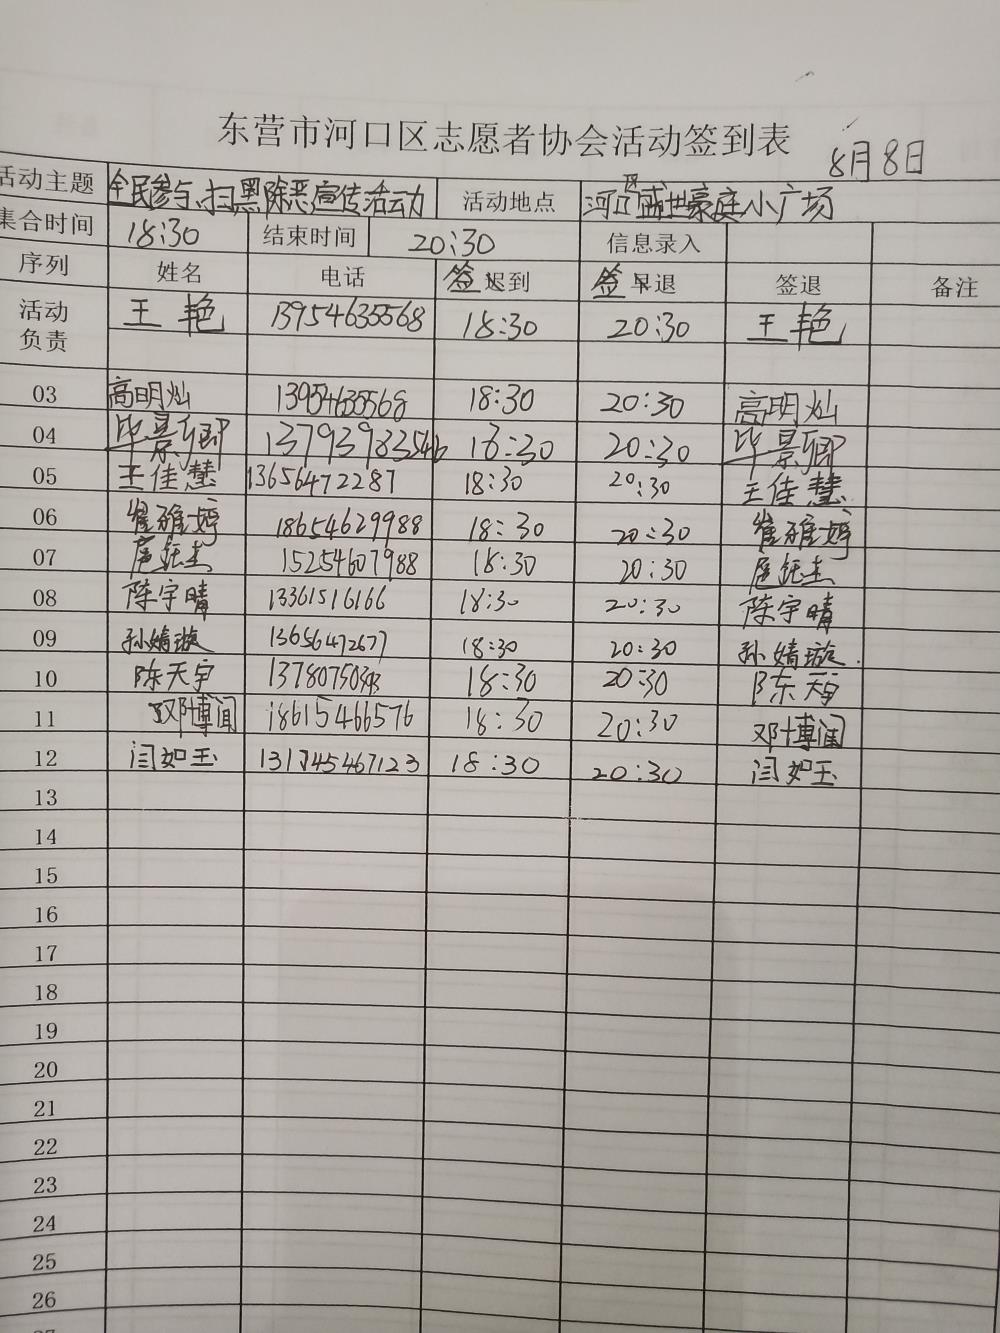 东营市河口区志愿者协会活动签到表
8月8日
活动主题 全民参与、扫黑除恶宣传活动 活动地点 河口区盛世豪庭小广场
集合时间 18:30 结束时间 20:30 信息录入
序列 姓名 电话 签迟到 签早退 签退 备注
活动负责 王艳 13954635568 18:30 20:30 王艳
03 高明灿 13954635568 18:30 20:30 高明灿
04 毕景卿 13793983546 18:30 20:30 毕景卿
05 王佳慧 13656472287 18:30 20:30 王佳慧
06 崔雅婷 18654629988 18:30 20:30 崔雅婷
07 15254607988 18:30 20:30
08 陈宇晴 13361516166 18:30 20:30 陈宇晴
09 孙婧璇 13656472677 18:30 20:30 孙婧璇
10 陈天宇 18:30 20:30 陈天宇
11 邓博闻 18615466576 18:30 20:30 邓博闻
12 闫如玉 131745467123 18:30 20:30 闫如玉
13
14
15
16
17
18
19
20
21
22
23
24
25
26